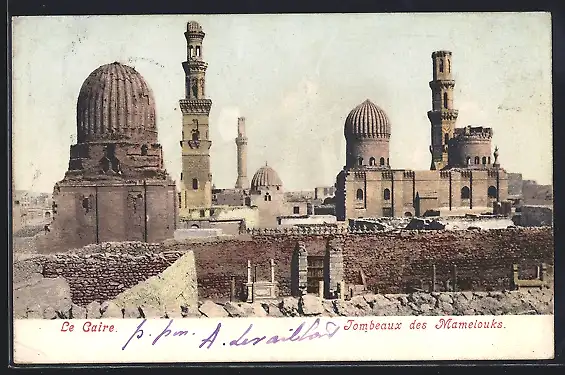 Le Caire. p. pm. A. Levaillard Tombeaux des Mamelouks.